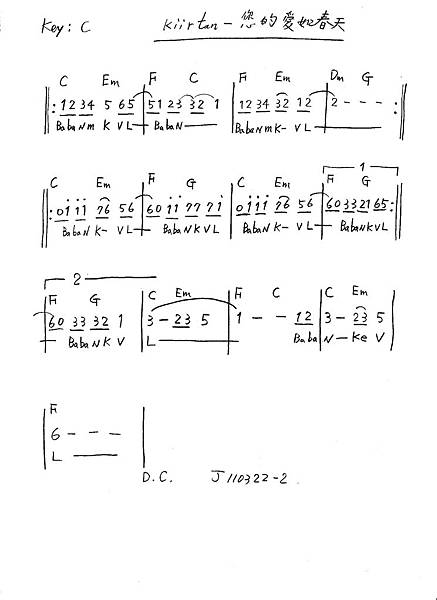 Key: C kiirtan - 您的愛如春天
C Em F C F Em Dm G
‖: 1234 5 65 | 5123 32 1 | 1234 32 12 | 2 - - - :‖
BabaNm K VL — BabaN — BabaNmK- VL —
C Em F G C Em F G 1
‖: 0i̇i̇i̇ 76 56 | 60 i̇i̇ 77 7i̇ | 0i̇i̇i̇ 76 56 | 60332165 :‖
BabaN K- VL — BabaNKVL BabaNK- VL — BabaNKVL
2
F G C Em F C C Em
60 33 32 1 | 3 - 23 5 | 1 - - 12 | 3 - 23 5 |
— BabaNK V L — Baba N - Ke V
F
6 - - - |
L —
D.C. J110322-2